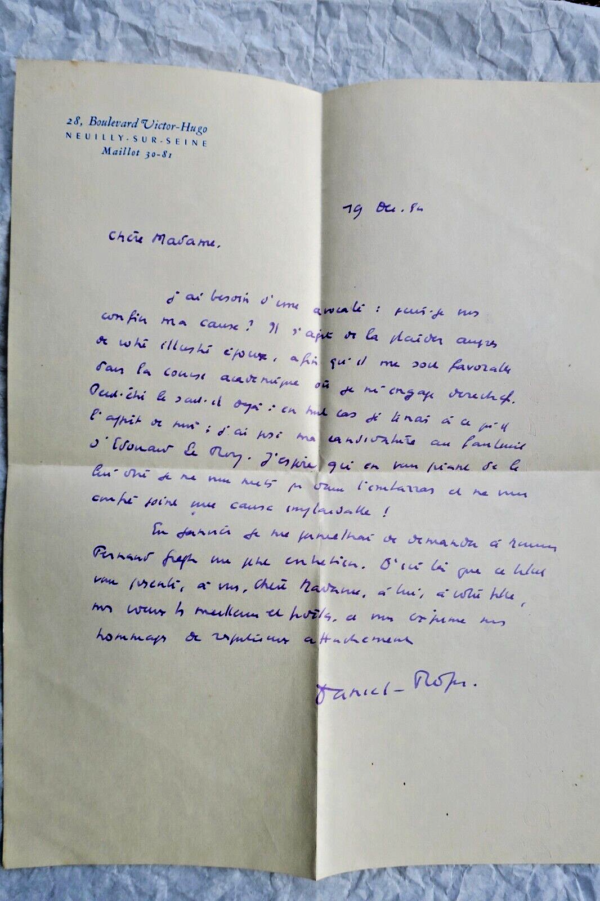 28, Boulevard Victor-Hugo
NEUILLY-SUR-SEINE
Maillot 30-81
19 Dec. 54
Chère Madame,
j'ai besoin d'une avocate : puis-je vous
confier ma cause ? Il s'agit de la plaider auprès
de votre illustre époux, afin qu'il me soit favorable
dans la course académique où je m'engage derechef.
Peut-être le sait-il déjà : en tout cas je tenais à ce qu'il
l'apprît de moi ; j'ai posé ma candidature au fauteuil
d'Edouard Le Roy. J'espère qu'en vous priant de le
lui dire je ne vous mets pas dans l'embarras et ne vous
confie point une cause implaidable !
En janvier je me permettrai de demander à
Fernand Gregh un entretien. D'ici là que ce billet
vous présente, à vous, Chère Madame, à lui, à votre
mes voeux les meilleurs et vous exprime mes
hommages de respectueux attachement
Daniel-Rops.